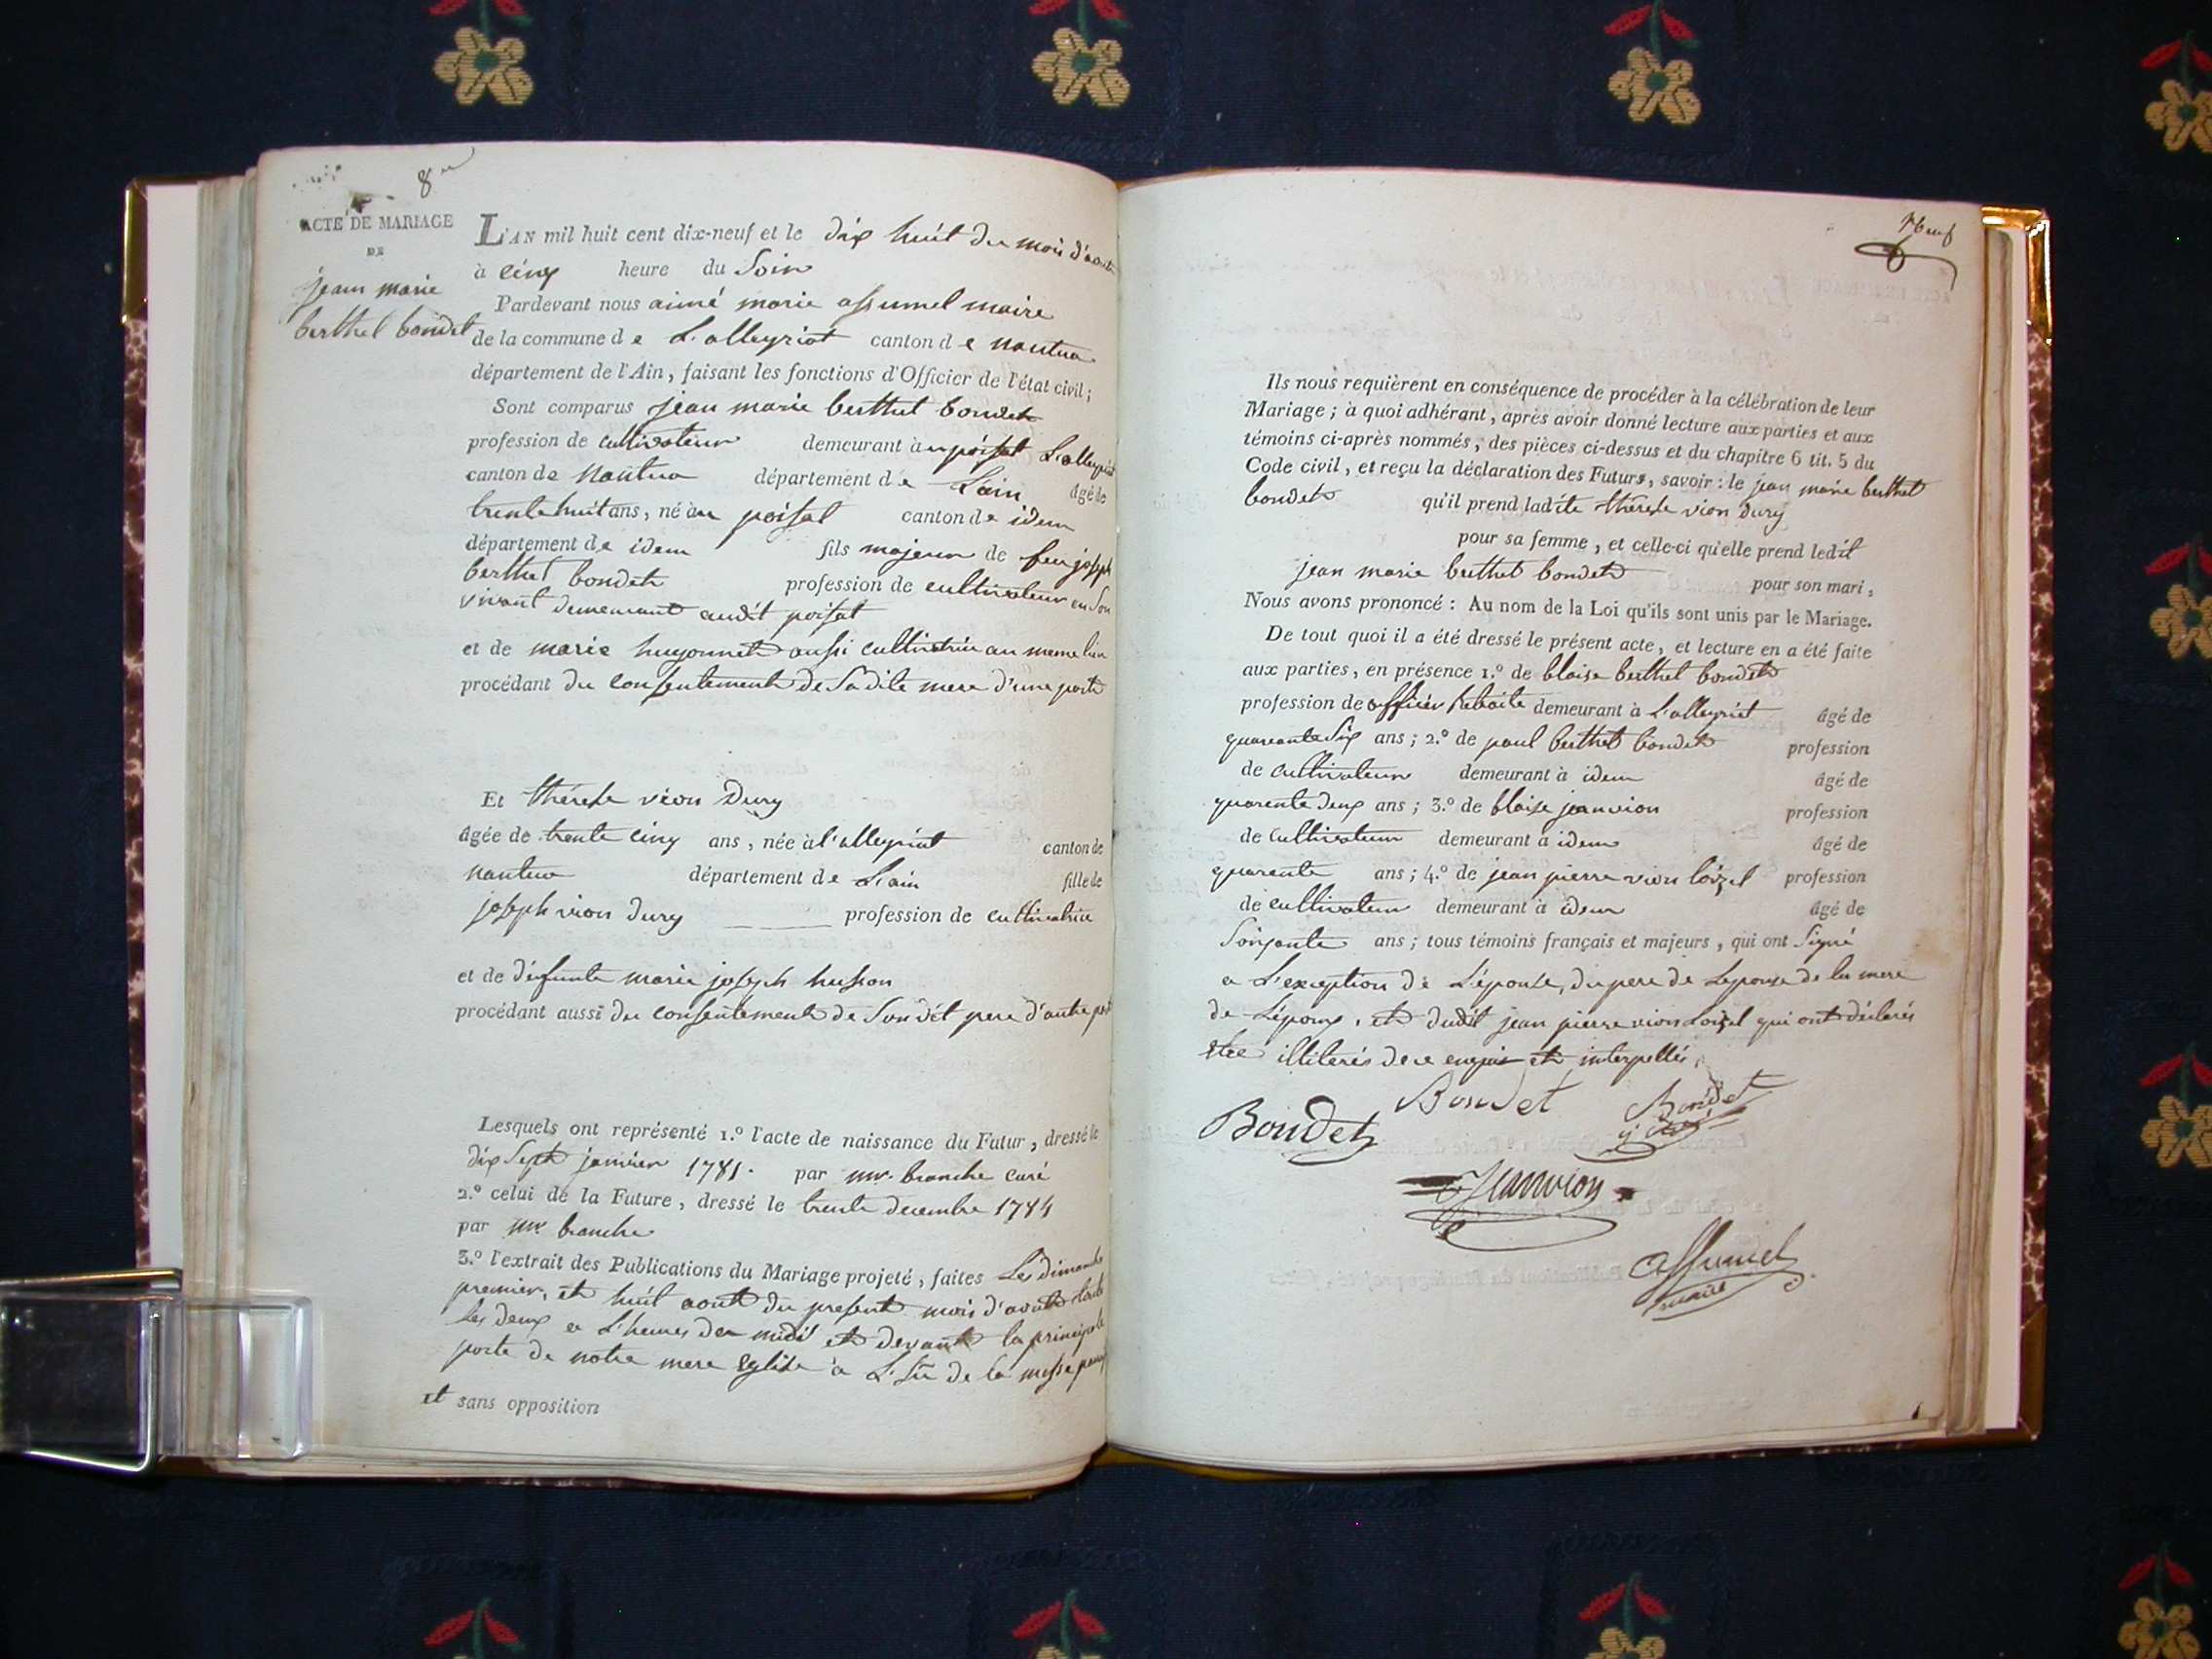 8
ACTE DE MARIAGE
DE
jean marie
berthet bondet
L'AN mil huit cent dix-neuf et le dix huit du mois d'aout
à cinq heure du Soir
Pardevant nous aimé marie assumel maire
de la commune de L'alleyriat canton de nantua
département de l'Ain, faisant les fonctions d'Officier de l'état civil;
Sont comparus jean marie berthet bondet
profession de cultivateur demeurant au poisat L'alleyriat
canton de Nantua département de L'ain âgé de
trente huit ans, né au poisat canton de idem
département de idem fils majeur de feu joseph
berthet bondet profession de cultivateur en Son
vivant demeurant audit poisat
et de marie hugonnet aussi cultivatrice au meme lieu
procédant du consentement de Sadite mere d'une part
Et thérese vion Dury
âgée de trente cinq ans, née à l'alleyriat canton de
nantua département de L'ain fille de
joseph vion dury profession de cultivatrice
et de défunte marie joseph husson
procédant aussi du consentement de Sondit pere d'autre part
Lesquels ont représenté 1.º l'acte de naissance du Futur, dressé le
dix Sept janvier 1781. par mr. branche curé
2.º celui de la Future, dressé le trente decembre 1784
par mr. branche
3.º l'extrait des Publications du Mariage projeté, faites Les dimanche
premier, et huit aout du present mois d'aout toute
les deux a L'heure de midi et devant la principale
porte de notre mere Eglise à L'issü de la messe
et sans opposition
Neuf
Ils nous requièrent en conséquence de procéder à la célébration de leur
Mariage; à quoi adhérant, après avoir donné lecture aux parties et aux
témoins ci-après nommés, des pièces ci-dessus et du chapitre 6 tit. 5 du
Code civil, et reçu la déclaration des Futurs, savoir: le jean marie berthet
bondet qu'il prend ladite thérese vion dury
pour sa femme, et celle-ci qu'elle prend ledit
jean marie berthet bondet pour son mari,
Nous avons prononcé: Au nom de la Loi qu'ils sont unis par le Mariage.
De tout quoi il a été dressé le présent acte, et lecture en a été faite
aux parties, en présence 1.º de blaise berthet bondet
profession de officier Retraite demeurant à L'alleyriat âgé de
quarante Six ans; 2.º de paul berthet bondet profession
de cultivateur demeurant à idem âgé de
quarente deux ans; 3.º de blaise jeanvion profession
de cultivateur demeurant à idem âgé de
quarente ans; 4.º de jean pierre vion loizel profession
de cultivateur demeurant à idem âgé de
Soixante ans; tous témoins français et majeurs, qui ont Signé
a L'exception de L'épouse, du pere de Lepouse de la mere
de L'époux, et dudit jean pierre vion Loizel qui ont déclarés
etre illiterés de ce enquis et interpellés,
Bondet
Bondet
Bondet
Janvion
assumel
maire